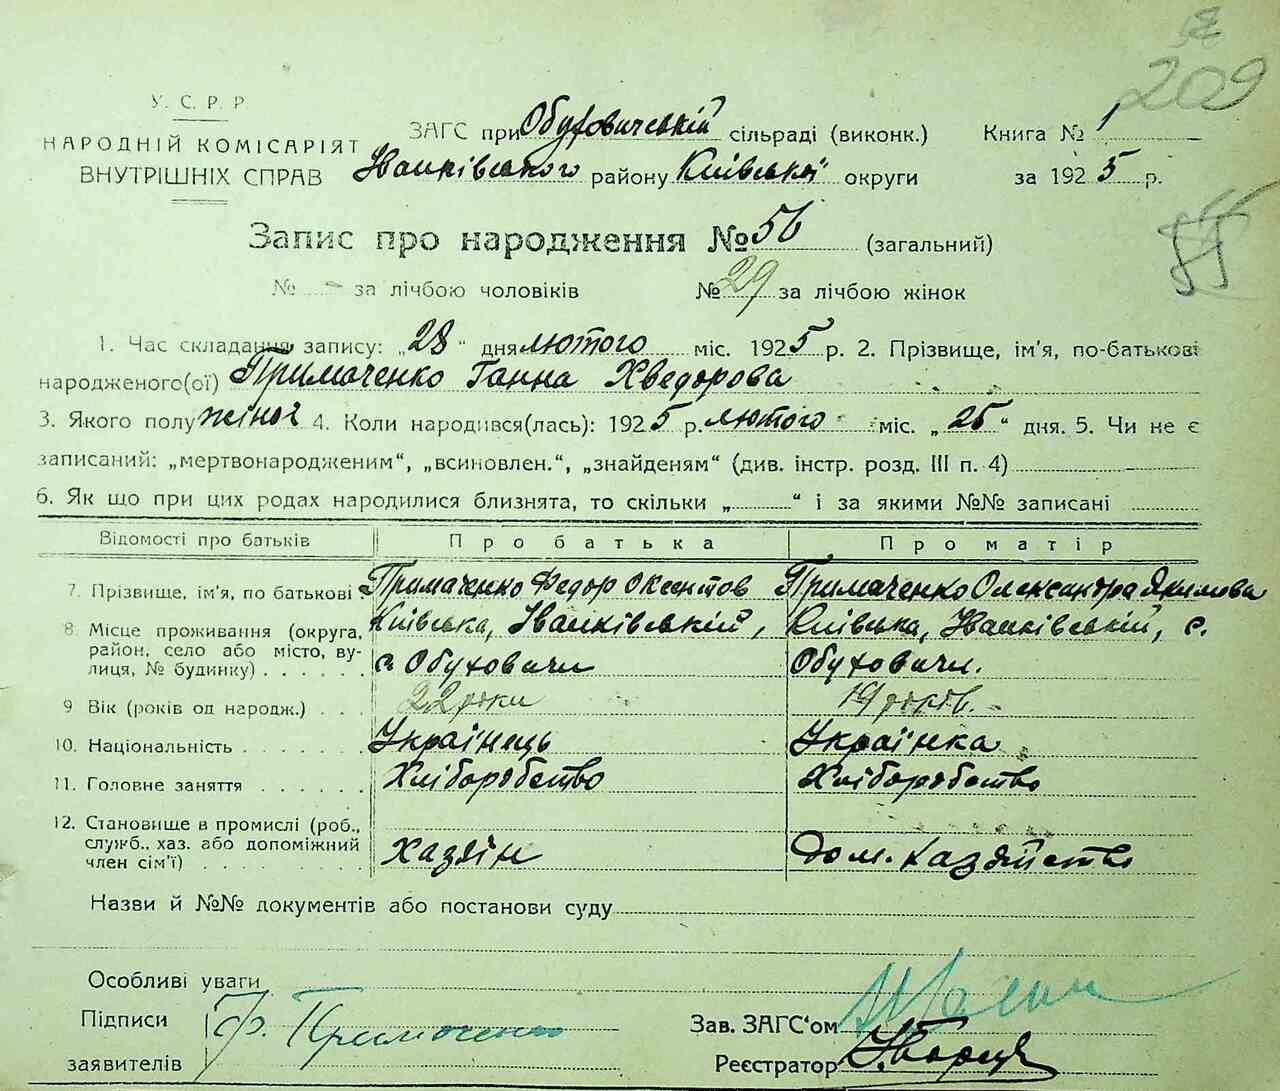 209
У. С. Р. Р.
НАРОДНІЙ КОМІСАРІЯТ
ВНУТРІШНІХ СПРАВ
ЗАГС при Обуховичській сільраді (виконк.) Книга № 1
Іванківського району Київської округи за 1925 р.
Запис про народження № 56 (загальний)
№ - за лічбою чоловіків № 29 за лічбою жінок
1. Час складання запису: „28“ дня лютого міс. 1925 р. 2. Прізвище, ім'я, по-батькові
народженого(ої) Примаченко Ганна Хведорова
3. Якого полу жіноч 4. Коли народився(лась): 1925 р. лютого міс. „25“ дня. 5. Чи не є
записаний: „мертвонародженим“, „всиновлен.“, „знайденям“ (див. інстр. розд. III п. 4)
6. Як що при цих родах народилися близнята, то скільки „ “ і за якими №№ записані
Відомості про батьків Про батька Про матір
7. Прізвище, ім'я, по батькові Примаченко Федор Оксентов Примаченко Олександра Якимова
8. Місце проживання (округа, район, село або місто, вулиця, № будинку) Київська, Іванківській, с. Обуховичи Київська, Іванківській, с. Обуховичи.
9 Вік (років од народж.) 22 роки 19 років.
10. Національність Українець Українка
11. Головне заняття Хліборобство Хліборобство
12. Становище в промислі (роб., служб., хаз. або допоміжний член сім'ї) Хазяін Дом. хазяйство
Назви й №№ документів або постанови суду
Особливі уваги
Підписи
заявителів Ф. Примаченко
Зав. ЗАГС'ом
Реєстратор